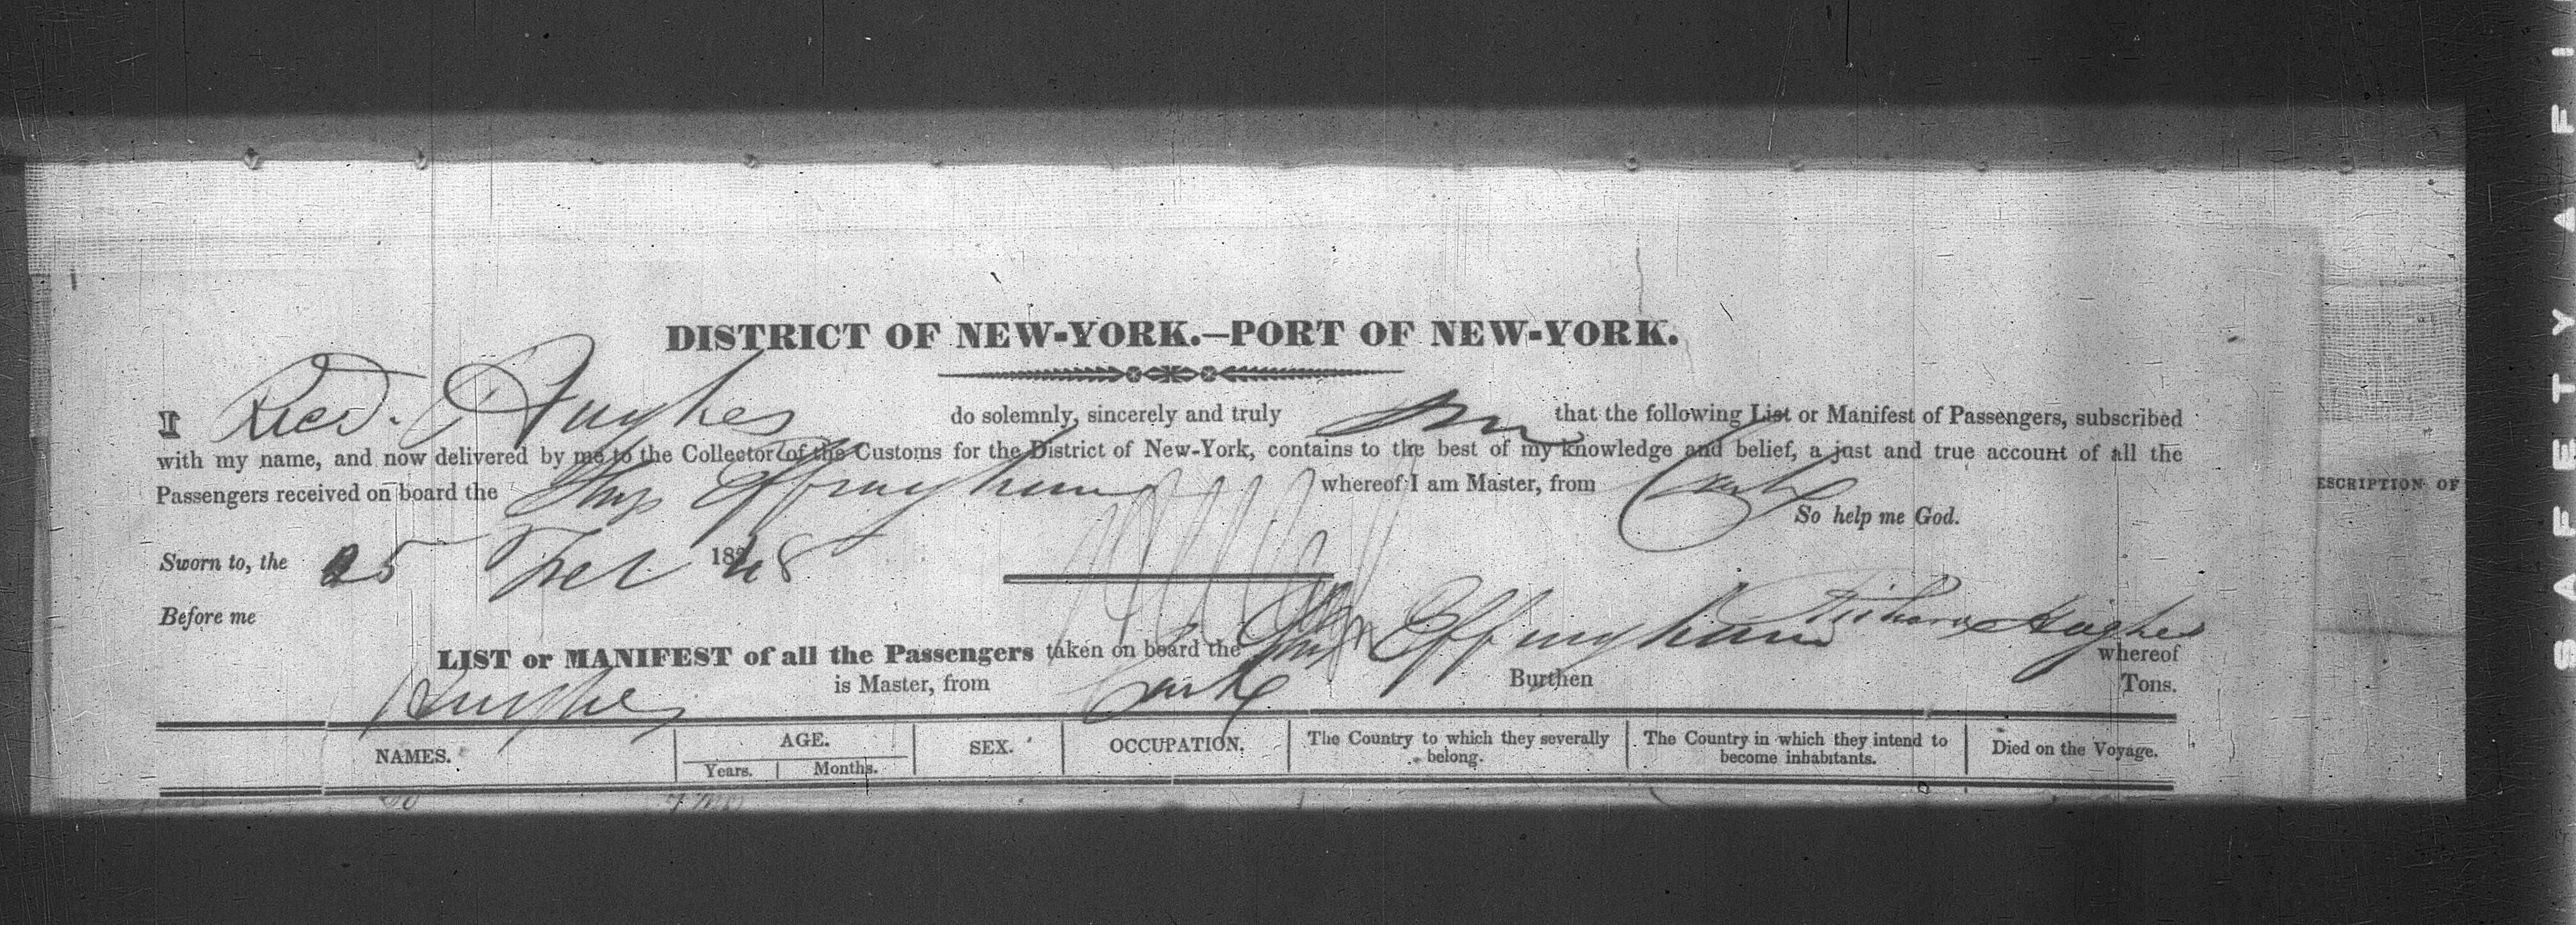 DISTRICT OF NEW-YORK.—PORT OF NEW-YORK.
I Ricd. Hughes do solemnly, sincerely and truly that the following List or Manifest of Passengers, subscribed
with my name, and now delivered by me to the Collector of the Customs for the District of New-York, contains to the best of my knowledge and belief, a just and true account of all the
Passengers received on board the Ship Effingham whereof I am Master, from Cork
So help me God.
Sworn to, the 25 Feb 1848
Before me
Richard Hughes
LIST or MANIFEST of all the Passengers taken on board the Ship Effingham whereof
Hughes is Master, from Cork Burthen Tons.
NAMES. AGE. SEX. OCCUPATION. The Country to which they severally belong. The Country in which they intend to become inhabitants. Died on the Voyage.
Years. Months.
ESCRIPTION OF
SAFETY